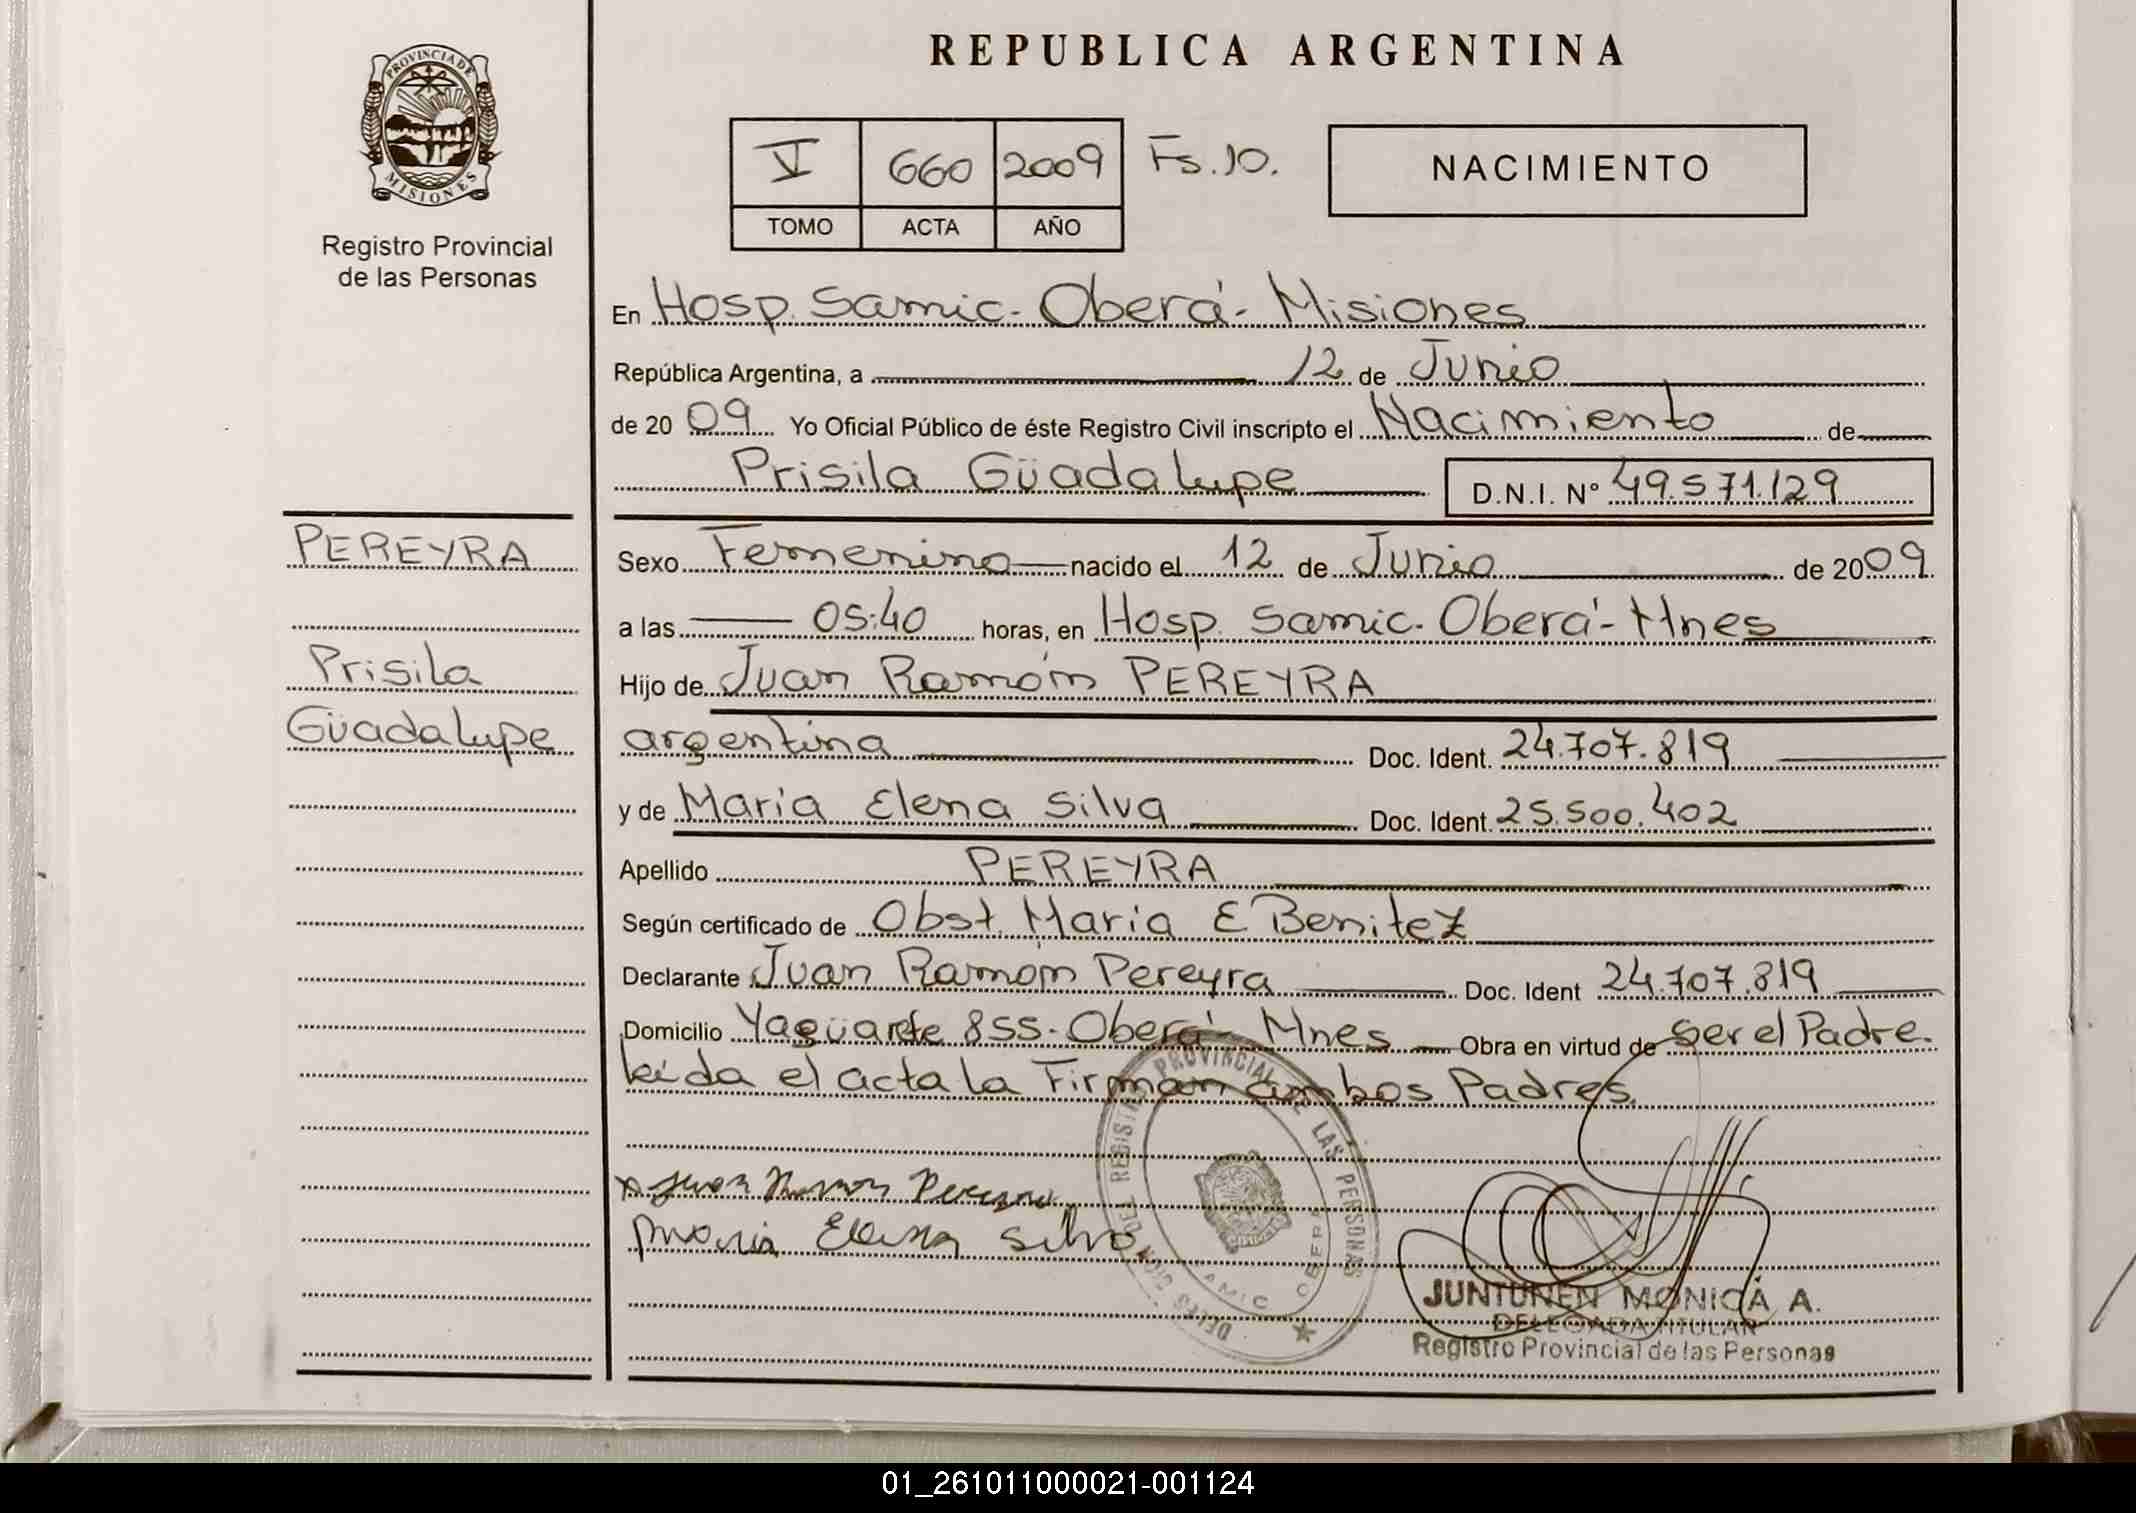 REPUBLICA ARGENTINA
PROVINCIA DE
MISIONES
Registro Provincial
de las Personas
V 660 2009 Fs. 10.
TOMO ACTA AÑO
NACIMIENTO
En Hosp. Samic - Oberá - Misiones
República Argentina, a 12 de Junio
de 2009 Yo Oficial Público de éste Registro Civil inscripto el Nacimiento de
Prisila Güadalupe D.N.I. Nº 49.571.129
PEREYRA
Prisila
Güadalupe
Sexo Femenino nacido el 12 de Junio de 2009
a las 05:40 horas, en Hosp. Samic. Oberá - Mnes
Hijo de Juan Ramón PEREYRA
argentina Doc. Ident. 24.707.819
y de Maria Elena Silva Doc. Ident. 25.500.402
Apellido PEREYRA
Según certificado de Obst. Maria E Benitez
Declarante Juan Ramón Pereyra Doc. Ident 24.707.819
Domicilio Yagüarete 855 - Oberá - Mnes Obra en virtud de ser el Padre.
leída el acta la Firman ambos Padres.
x Juan Ramon Pereyra
Maria Elena Silva
DELEGACION DEL REGISTRO PROVINCIAL DE LAS PERSONAS
SAMIC OBERA
JUNTUNEN MONICA A.
DELEGADA TITULAR
Registro Provincial de las Personas
01_261011000021-001124